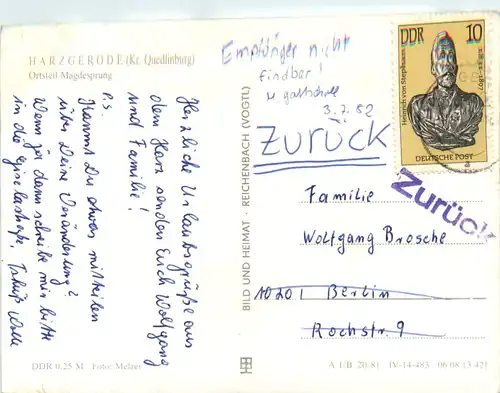 HARZGERODE (Kr. Quedlinburg)
Ortsteil Magdesprung
Herzliche Urlaubsgrüße aus
dem Harz senden Euch Wolfgang
und Familie!
P.S.
Kannst Du etwas mitteilen
über Deine Veränderung?
Wenn ja, dann schreibe mir bitte
in die Giselastraße. Tschüß
DDR 0,25 M Foto: Melzer
BILD UND HEIMAT · REICHENBACH (VOGTL)
Empfänger nicht
findbar!
3.7.82
Zurück
DDR 10
Heinrich von Stephan
1831-1897
DEUTSCHE POST
Zurück
Familie
Wolfgang Brosche
1020 Berlin
Rochstr. 9
A 1/B 20/81 IV-14-483 06 08 13 421